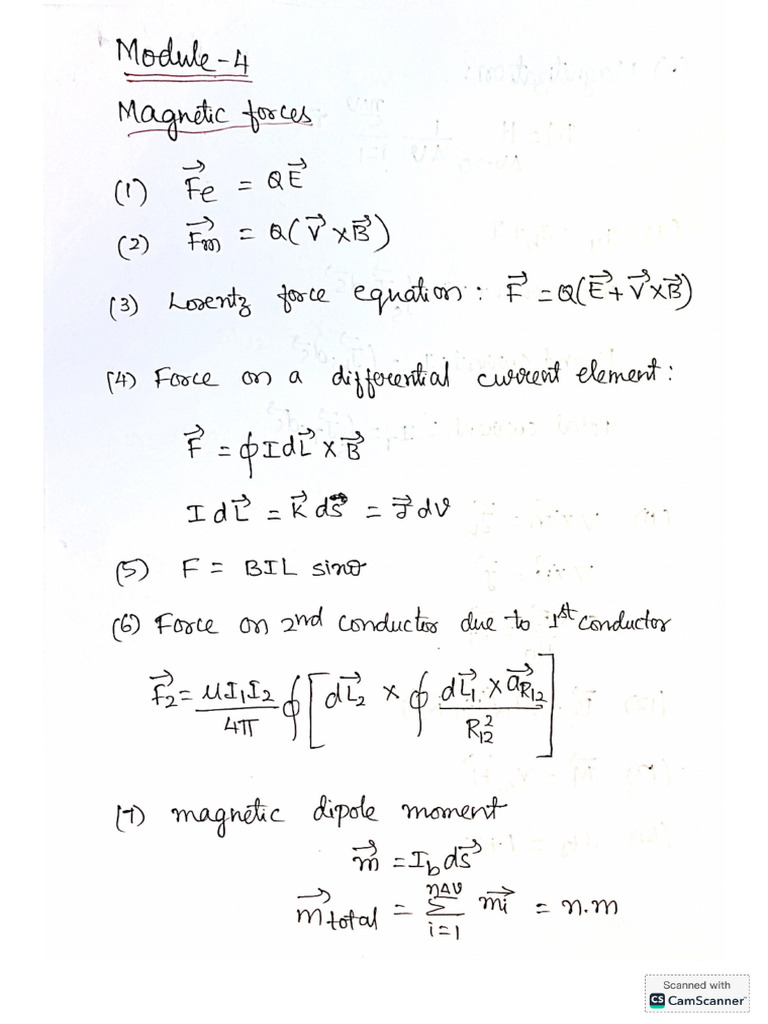 Module-4
Magnetic forces
(1) F⃗e = QE⃗
(2) F⃗m = Q(V⃗ × B⃗)
(3) Lorentz force equation : F⃗ = Q(E⃗ + V⃗ × B⃗)
(4) Force on a differential current element :
F⃗ = ∮ I dL⃗ × B⃗
I dL⃗ = K⃗ ds⃗ = J⃗ dv
(5) F = BIL sinθ
(6) Force on 2nd conductor due to 1st conductor
F⃗₂ = μI₁I₂/4π ∮ [dL⃗₂ × ∮ dL⃗₁ × a⃗R₁₂/R₁₂²]
(7) magnetic dipole moment
m⃗ = I_b ds⃗
m⃗total = Σ_{i=1}^{nΔv} m⃗i = n.m
Scanned with
CS CamScanner